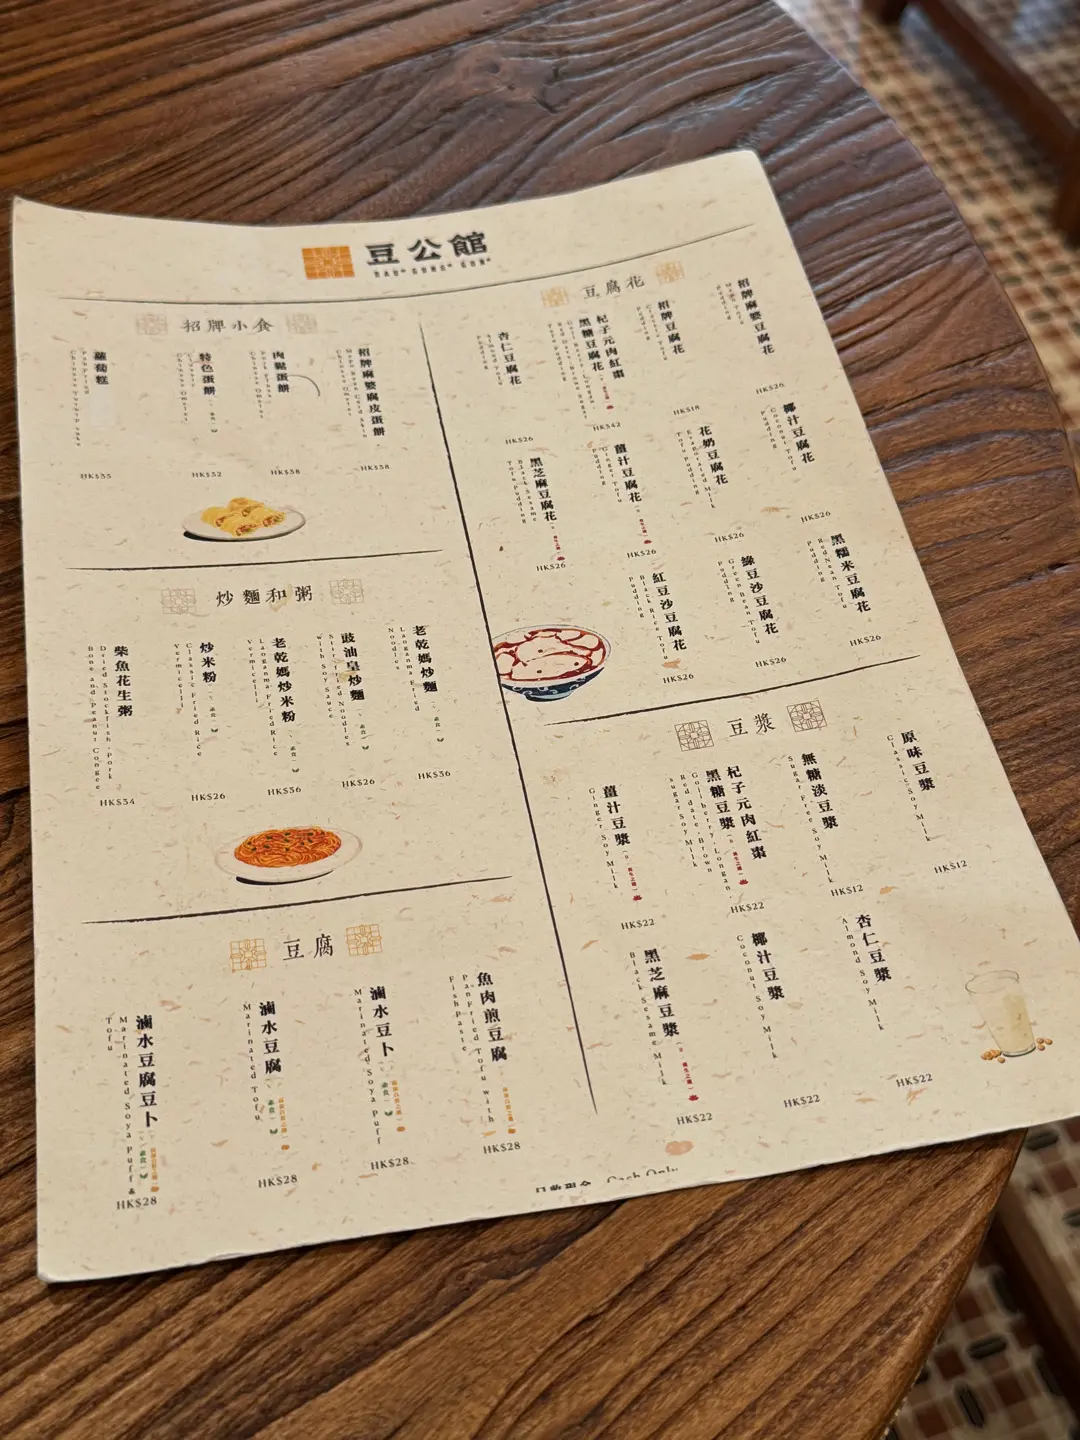 豆公館
招牌小食
招牌麻婆腐皮蛋餅
HK$38
肉鬆蛋餅
HK$38
特色蛋餅
HK$32
蘿蔔糕
HK$35
炒麵和粥
老乾媽炒麵
Laoganma Fried
Noodles
HK$36
豉油皇炒麵
Stir-fried Noodles
with Soy Sauce
HK$26
老乾媽炒米粉
Laoganma Fried Rice
Vermicelli
HK$36
炒米粉
Classic Fried Rice
Vermicelli
HK$26
柴魚花生粥
Dried Stockfish, Pork
Bone and Peanut Congee
HK$34
豆腐
魚肉煎豆腐
Pan Fried Tofu with
Fish Paste
HK$28
滷水豆卜
Marinated Soya Puff
HK$28
滷水豆腐
Marinated Tofu
HK$28
滷水豆腐豆卜
Marinated Soya Puff &
Tofu
HK$28
豆腐花
招牌麻婆豆腐花
Mapo Tofu
Pudding
HK$26
招牌豆腐花
Classic Tofu
Pudding
HK$18
杞子元肉紅棗
黑糖豆腐花
HK$42
杏仁豆腐花
Almond Tofu
Pudding
HK$26
椰汁豆腐花
Coconut Tofu
Pudding
HK$26
花奶豆腐花
Evaporated Milk
Tofu Pudding
HK$26
薑汁豆腐花
Ginger Tofu
Pudding
HK$26
黑芝麻豆腐花
Black Sesame
Tofu Pudding
HK$26
黑糯米豆腐花
Red Bean Tofu
Pudding
HK$26
綠豆沙豆腐花
Green Bean Tofu
Pudding
HK$26
紅豆沙豆腐花
Black Rice Tofu
Pudding
HK$26
豆漿
原味豆漿
Classic Soy Milk
HK$12
無糖淡豆漿
Sugar Free Soy Milk
HK$12
杞子元肉紅棗
黑糖豆漿
Goji berry, Longan
Red date, Brown
sugar Soy Milk
HK$22
薑汁豆漿
Ginger Soy Milk
HK$22
杏仁豆漿
Almond Soy Milk
HK$22
椰汁豆漿
Coconut Soy Milk
HK$22
黑芝麻豆漿
Black Sesame Milk
HK$22
Cash Only